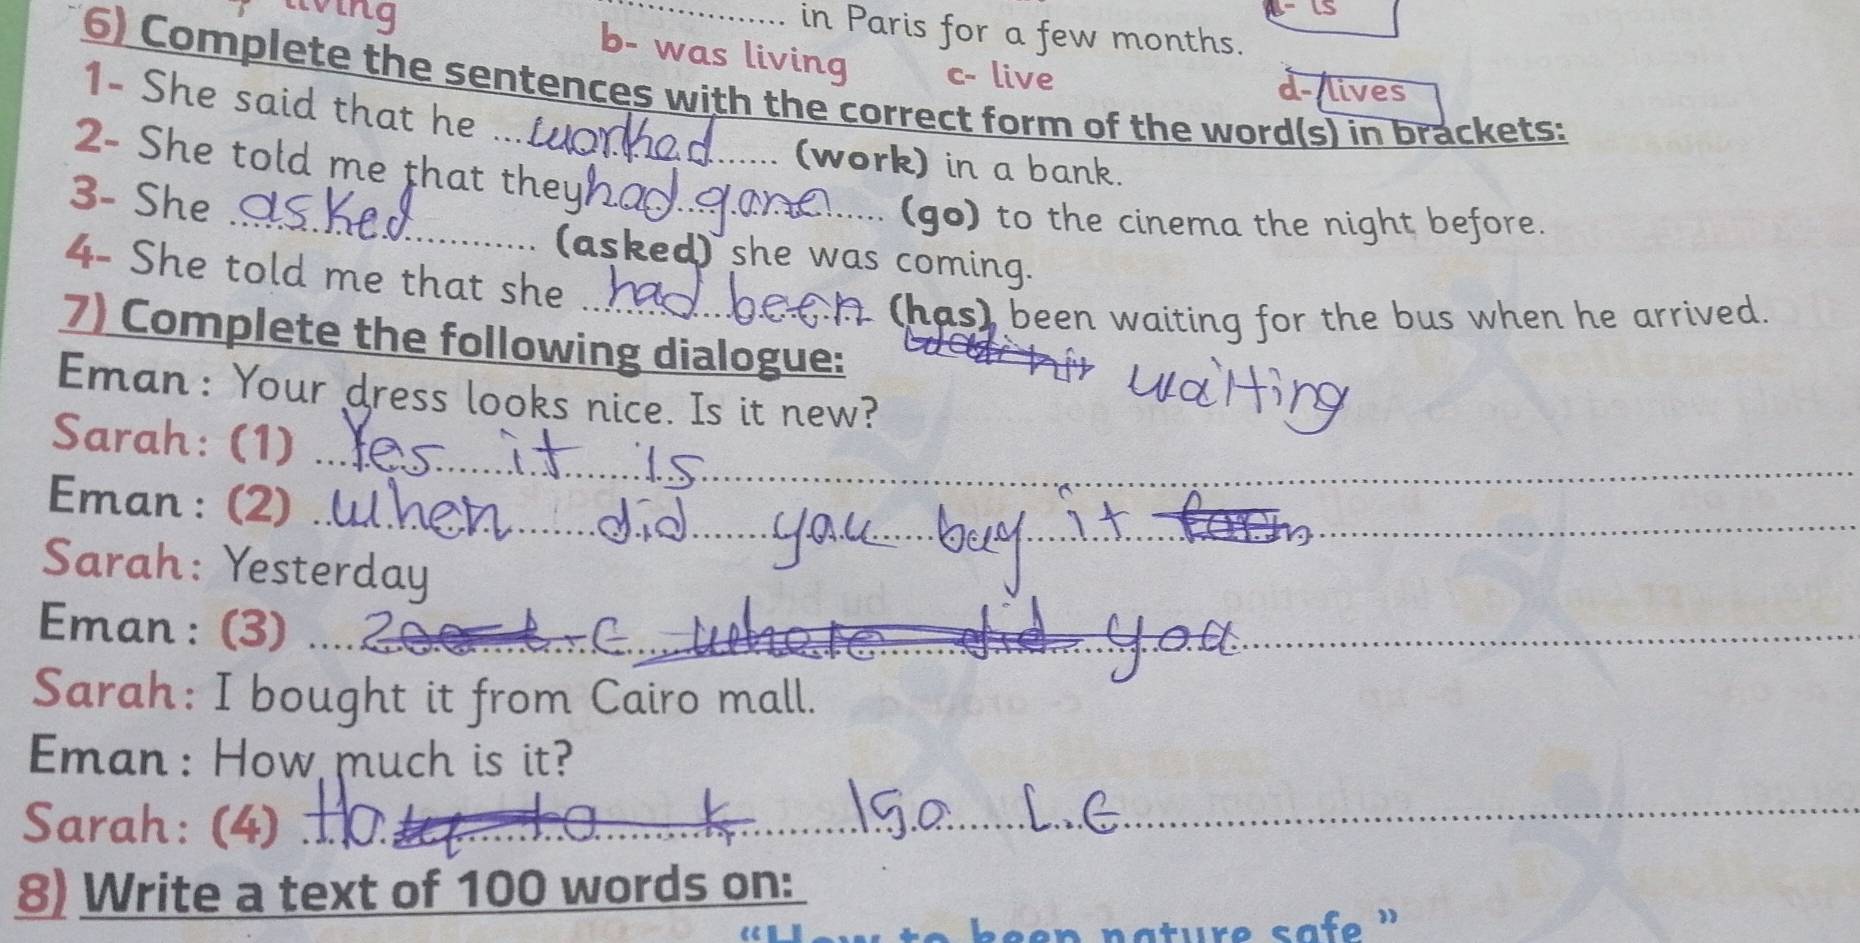 in Paris for a few months.
b- was living c- live d- lives
6) Complete the sentences with the correct form of the word(s) in brackets:
1- She said that he ...worked...... (work) in a bank.
2- She told me that they had gone ...... (go) to the cinema the night before.
3- She asked ............ (asked) she was coming.
4- She told me that she ... had been (has) been waiting for the bus when he arrived.
waiting
7) Complete the following dialogue:
Eman: Your dress looks nice. Is it new?
Sarah: (1) ... Yes it is
Eman: (2) .. When did you buy it
Sarah: Yesterday
Eman: (3) .... where did you
Sarah: I bought it from Cairo mall.
Eman: How much is it?
Sarah: (4) 150 L.E
8) Write a text of 100 words on:
"How to keep nature safe"